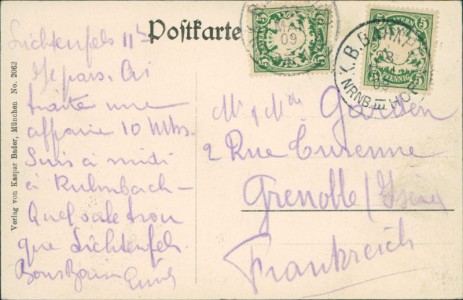 Postkarte
Lichtenfels 11h
Je pars. Ai
traité une
affaire 10 Mks.
Suis à midi
à Kulmbach-
Quel sale trou
que Lichtenfels.
Bons Baisers
Verlag von Kaspar Bader, München No. 2062
BAYERN
5
09
BAYERN
5
NRNB. HOF
M. & Mme
2 Rue Turenne
Grenoble / Isère
Frankreich